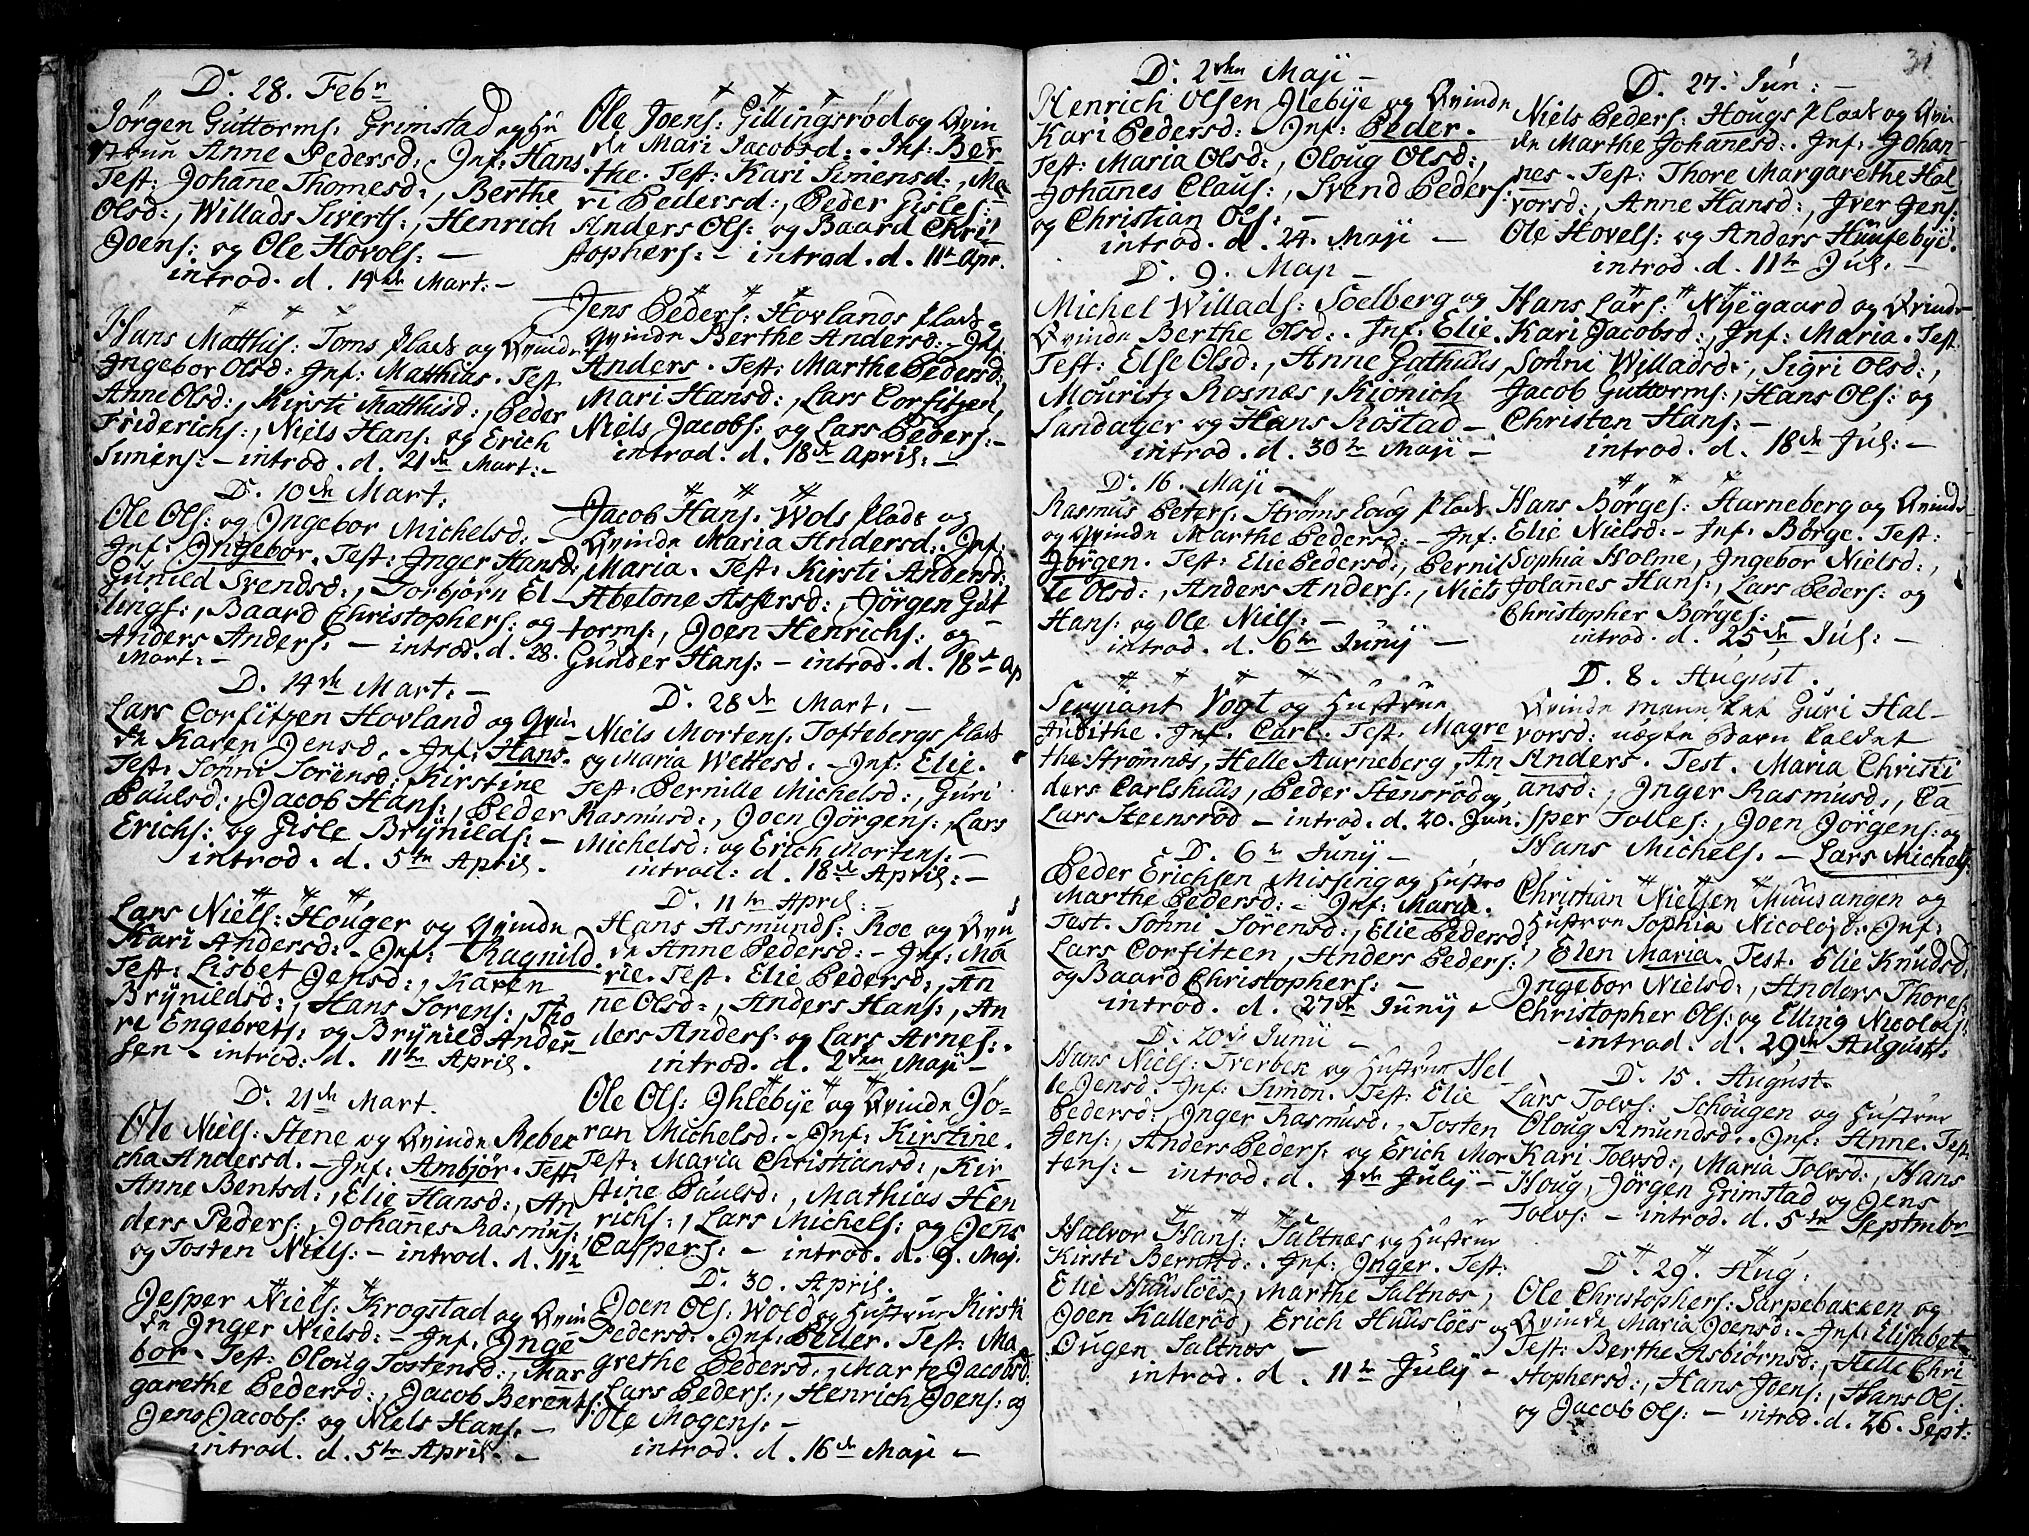 D. 28. Febr
Jörgen Guttorms: Grimstad og Hu
struu Anne Pedersd: Inf: Hans.
Test: Johane Thomesd:, Berthe
Olsd:, Willads Siverts:, Henrich
Joens: og Ole Hovols: —
introd. d. 14de Mart: —
Hans Matthis: Toms plads og Qvinde
Ingebor Olsd: Inf: Matthias. Test
Anne Olsd:, Kirsti Matthisd:, Peder
Friderichs:, Niels Hans: og Erich
Simens: — introd. d. 21de Mart: —
D. 10de Mart.
Ole Ols: og Ingebor Michelsd: —
Inf: Ingebor. Test: Inger Hansd:
Gunild Svendsd:, Torbjörn El-
lings:, Baard Christophers: og
Anders Anders: — introd. d. 28.
Mart: —
D. 14de Mart. —
Lars Corfitzen Hovland og Qvin
de Karen Jensd. — Inf: Hans.
Test: Sönni Sörensd: Kirstine
Paulsd:, Jacob Hans:, Peder
Erichs: og Gisle Brÿnilds: —
introd. d. 5te April.
Lars Niels: Höuger og Qvinde
Kari Andersd: Inf: Ragnild.
Test: Lisbet Jensd:, Karen
Brÿnildsd:, Hans Sorens:, Tho
re Engebrets: og Brÿnild Ander-
sen — introd: d. 11te April.
D. 21de Mart.
Ole Niels: Stene og Qvinde Rebec
cha Andersd. — Inf: Ambjør. Test:
Anne Bentsd:, Elie Hansd:, An
ders Peders:, Johanes Rasmus:
og Tosten Niels: — introd. d. 11te
Jesper Niels: Krogstad og Qvin
de Inger Nielsd: — Inf: Inge
bor. Test: Oloug Tostensd:, Mar
garethe Pedersd:, Jacob Berents:
Jens Jacobs: og Niels Hans: —
introd. d. 5te April. —
Ole Joens: Gillingsrød og Qvin
de Mari Jacobsd: Inf: Ber
the. Test: Kari Simensd:, Ma
ri Pedersd:, Peder Gisles:
Anders Ols: og Baard Chri
stophers: — introd. d. 11te Apr.
Jens Peders: Hovlands plads og
Qvinde Berthe Andersd: Inf
Anders. Test: Marthe Pedersd:
Mari Hansd:, Lars Corfitzen,
Niels Jacobs: og Lars Peders: —
introd. d. 18de April: —
Jacob Hans. Wols plads og
Qvinde Maria Andersd: Inf:
Maria. Test: Kirsti Andersd:
Abelone Assersd:, Jörgen Gut
torms:, Joen Henrichs: og
Gunder Hans: — introd. d. 18de Ap
D. 28de Mart. —
Niels Mortens: Toftebergs plads
og Maria Wettesd. — Inf: Elie.
Test: Pernille Michelsd:, Guri
Rasmusd:, Joen Jörgens:, Lars
Michelsd: og Erich Mortens: —
introd: d. 18de April: —
D. 11te April:
Hans Asmunds: Roe og Qvin
de Anne Pedersd: — Inf: Ma
rie. Test: Elie Pedersd:, An
ne Olsd:, Anders Hans:, An
ders Anders: og Lars Arnes: —
introd: d. 2den Maji —
Ole Ols: Ihlebye og Qvinde Jö-
ran Michelsd: — Inf: Kirstine.
Test: Maria Christiansd:, Kir
stine Paulsd:, Mathias Hen
richs:, Lars Michels: og Jens
Caspers: — introd. d. 9. Maj.
D. 30. April.
Joen Ols: Wold og Hustrue Kirsti
Pedersd. Inf: Peder. Test: Ma
grethe Pedersd:, Marte Jacobsd
Lars Peders:, Henrich Joens: og
Ole Mogens: —
introd. d. 16de Maji —
31
D. 2den Maji —
Henrich Olsen Ilebÿe og Qvinde
Kari Pedersd: — Inf: Peder.
Test: Maria Olsd:, Oloug Olsd:,
Johanes Claus:, Svend Peders:
og Christian Ols: —
introd. d. 24. Maji —
D. 9. Maji —
Michel Willads: Soelberg og
Qvinde Berthe Olsd: Inf: Elie.
Test: Else Olsd:, Anne Gathuus,
Mouritz Rosnæs, Kiönich
Sandager og Hans Rostad —
introd. d. 30te Maji —
D. 16. Maji —
Rasmus Peters: Strömshoug plads
og Qvinde Marthe Pedersd: — Inf:
Jörgen. Test: Elie Pedersd:, Pernil
le Olsd:, Anders Anders:, Niels
Hans: og Ole Niels: —
introd. d. 6te Junÿ —
Sergiant Vogt og Hustrue
Judithe. Inf. Carl. Test. Magre
the Strømnæs, Helle Aarneberg, An
ders Carlshuus, Peder Stensrød og
Lars Steensröd — introd. d. 20. Jun.
D. 6te Junÿ —
Peder Erichsen Missing og Hustro
Marthe Pedersd: — Inf: Maria.
Test. Sönni Sörensd:, Elie Pedersd:
Lars Corfitzen, Anders Peders:
og Baard Christophers: —
introd. d. 27de Junÿ —
D. 20de Junii —
Hans Niels: Tverbek og Hustrue Hel-
le Jensd. Inf: Simon. Test: Elie
Pedersd: Inger Rasmusd:, Tosten
Jens:, Anders Peders: og Erich Mor
tens: — introd. d. 4de Julÿ —
Halvor Hans: Saltnæs og Hustrue
Kirsti Berntsd: Inf: Inger. Test:
Elie Huusløes, Marthe Saltnos,
Joen Kallerød, Erich Huusløes og
Ougen Saltnos —
introd. d. 11te Julÿ —
D. 27. Jun: —
Niels Peders: Hougs plads og Qvin
de Marthe Johanesd: Inf: Johan-
nes. Test: Thore Margarethe Hal
vorsd:, Anne Hansd:, Iver Jens:
Ole Hovels: og Anders Huusebye.
introd. d. 11te Jul: —
Hans Lars: Nÿegaard og Qvinde
Kari Jacobsd: Inf: Maria. Test
Sönni Willadsd:, Sigri Olsd:,
Jacob Guttorms:, Hans Ols: og
Christen Hans: —
introd. d. 18de Jul: —
Hans Börges: Aarneberg og Qvinde
Elie Nielsd: — Inf: Börge. Test:
Sophia Holme, Ingebor Nielsd:,
Johannes Hans:, Lars Peders: og
Christopher Börges: —
introd. d. 25de Jul: —
D. 8. August.
Qvinde mennesket Guri Hal-
vorsd: uægte Barn kaldet
Anders. Test. Maria Christi
ansd:, Inger Rasmusd:, Ca
sper Tolles:, Joen Jörgens: og
Hans Michels: — Lars Michels:
Christian Nielsen Muusangen og
Hustrue Sophia Nicolajd. Inf:
Elen Maria. Test. Elie Knudsd:
Ingebor Nielsd:, Anders Thores:
Christopher Ols: og Elling Nicolais:
introd. d. 29de August.
D. 15. August.
Lars Tolvs: Schougen og Hustrue
Oloug Amundsd. Inf: Anne. Test
Kari Tolvsd:, Maria Tolvsd:, Hans
Houg, Jörgen Grimstad og Jens
Tolvs: — introd. d. 5te Septembr
D. 29. Aug:
Ole Christophers: Sarpebakken og
Qvinde Maria Joensd: — Inf: Elisabet
Test: Berthe Asbiørnsd:, Helle Chri
stophersd:, Hans Joens:, Hans Ols:
og Jacob Ols: — introd. d. 26. Sept: